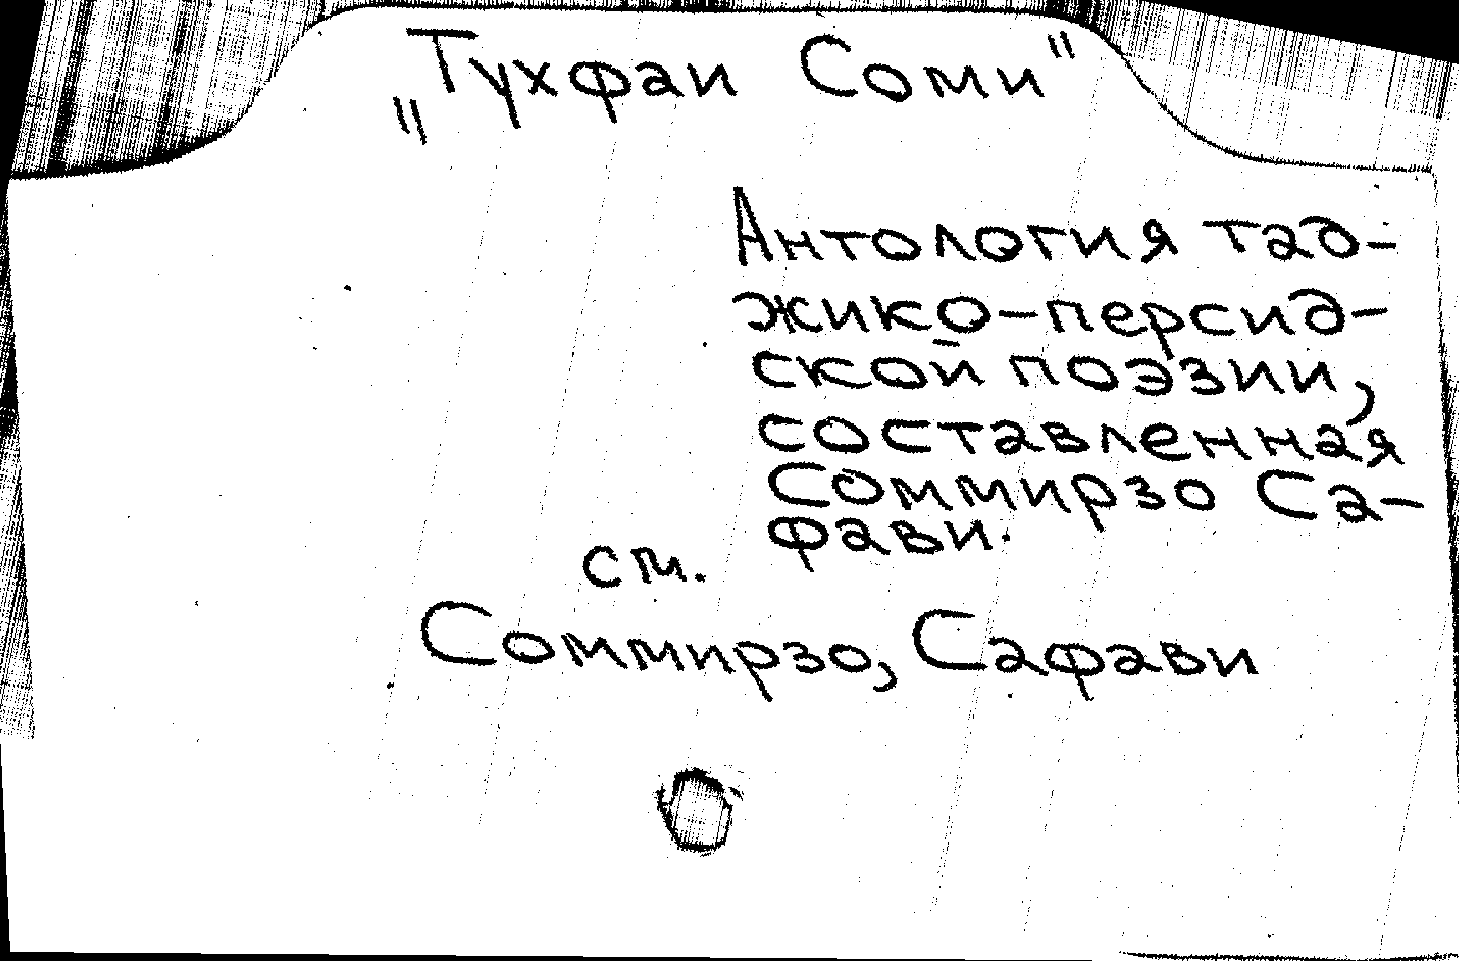 „Тухфаи Соми"
Антология тад-
жико-персид-
ской поэзии,
составленная
Соммирзо Са-
фави.
см.
Соммирзо, Сафави